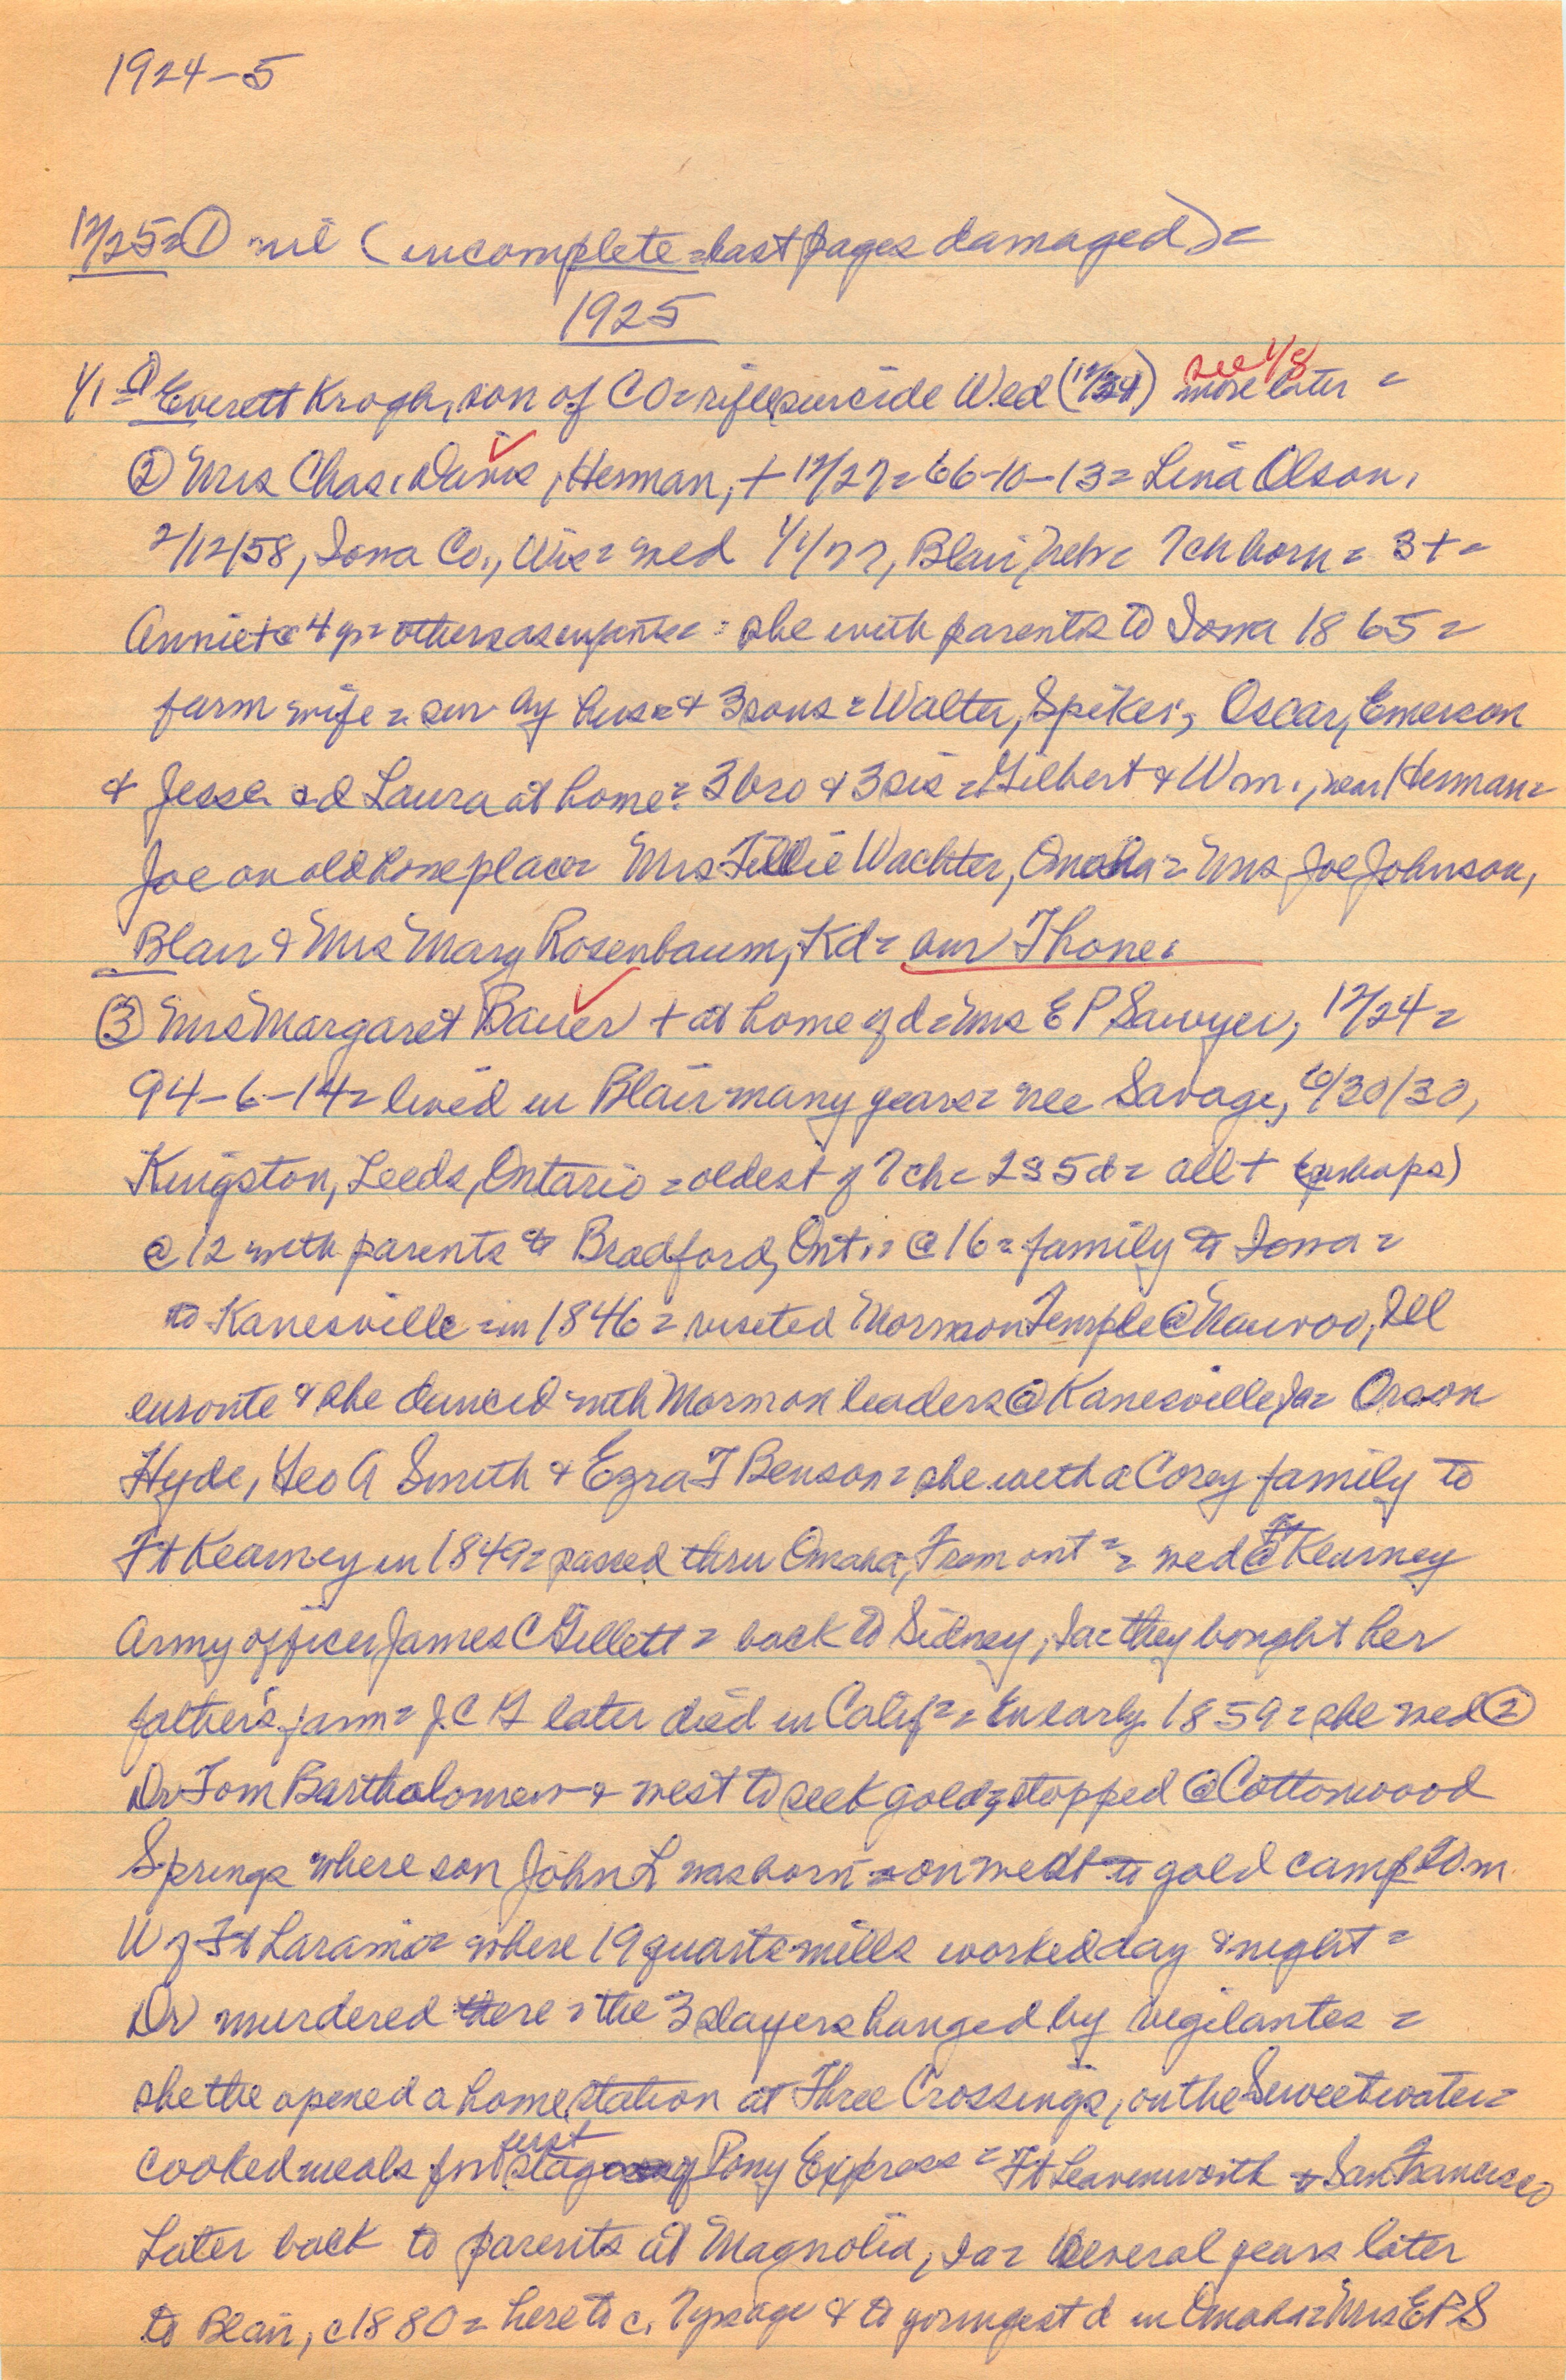 1924-5
12/25=① nil (incomplete=last pages damaged)=
1925
see 1/8
1/1=① Everett Krogh, son of CO=rifle suicide Wed (12/31) more later =
② Mrs Chas. Davis, Herman, + 12/27=66-10-13= Lena Olson,
2/12/58, Iowa Co., Wis= wed 1/1/77, Blair, Neb= 7 ch born= 3+=
Annie+@4 yr= others as infants= she with parents to Iowa 1865=
farm wife= sur by hus= & 3 sons= Walter, Spiker, Oscar, Emerson
& Jesse & d Laura at home= 3 bro & 3 sis= Gilbert & Wm., near Herman=
Joe on old home place= Mrs Tillie Wachter, Omaha= Mrs Joe Johnson,
Blair & Mrs Mary Rosenbaum, Kd= our Thone.
③ Mrs Margaret Bauer + at home of d=Mrs E P Sawyer, 12/24=
94-6-14= lived in Blair many years= nee Savage, 6/30/30,
Kingston, Leeds, Ontario=oldest of 7 ch= 2s 5d= all + (perhaps)
@12 with parents to Bradford, Ont.= @16= family to Iowa=
to Kanesville=in 1846= visited Mormon Temple @ Nauvoo, Ill
enroute & she danced with Mormon leaders @ Kanesville, Ia= Orson
Hyde, Geo A Smith & Ezra T Benson= she with a Corey family to
Ft Kearney in 1849= passed thru Omaha, Fremont== wed @ Ft Kearney
Army officer James C Gillett= back to Sidney, Ia= they bought her
father's farm= J.C G later died in Calif== In early 1859= she wed ②
Dr Tom Bartholomew & west to seek gold= stopped @ Cottonwood
Springs where son John L was born= on west to gold camp 90 m
W of Ft Laramie= where 19 quartz mills worked day & night=
Dr murdered there= the 3 slayers hanged by vigilantes=
she the opened a home station at Three Crossings, on the Sweetwater=
first
cooked meals for stage of Pony Express= Ft Leavenworth to San Francisco
Later back to parents at Magnolia, Ia= several years later
to Blair, c1880= here to c. 7 yrs ago & to youngest d in Omaha=Mrs E P S